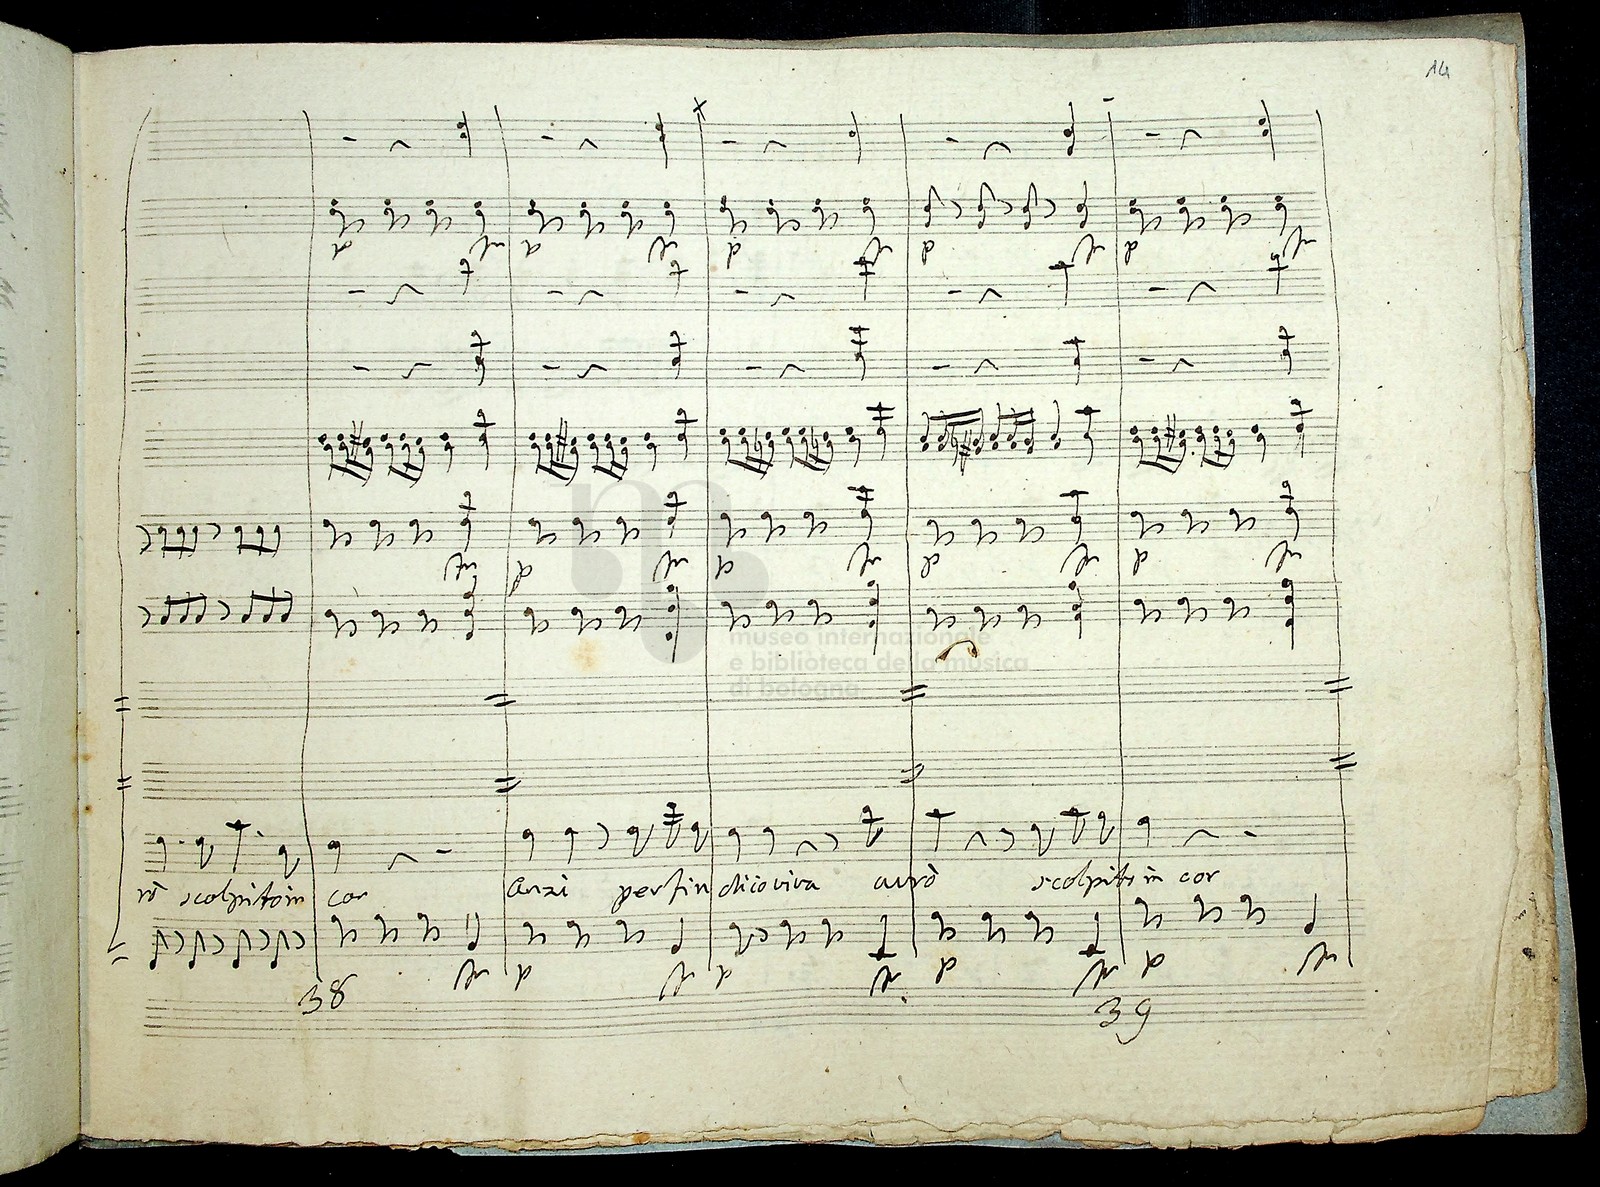 14
p p p p p
p p p p
museo internazionale
e biblioteca della musica
di bologna
rò scolpito in cor Anzi perfin di co viva avrò scolpito in cor
p p p p
38 39